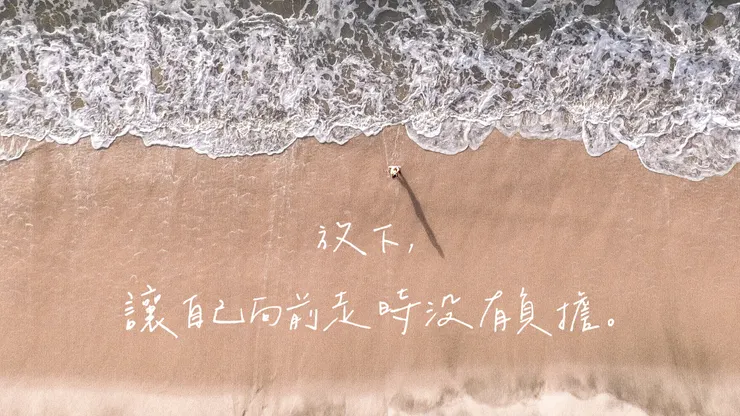 放下，
讓自己向前走時沒有負擔。